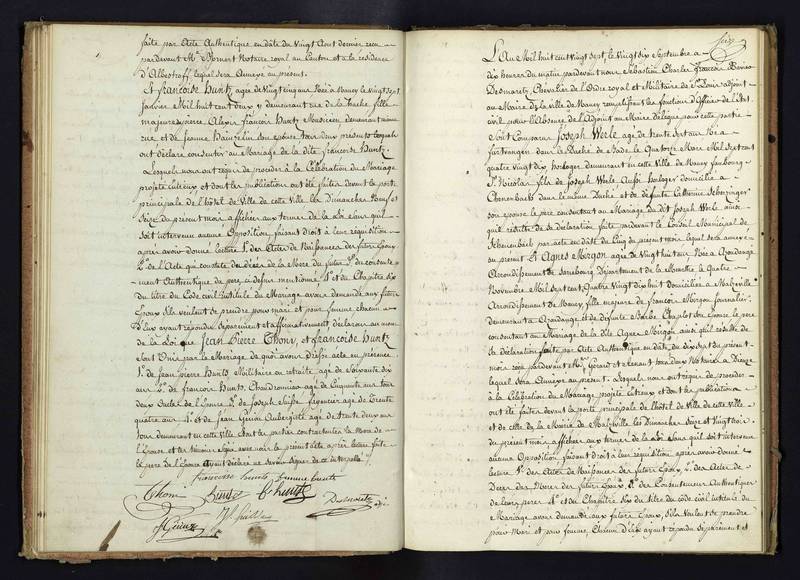 faite par Acte Authentique en date du Vingt Aout dernier recu
pardevant Me Bornert Notaire royal au Canton et a la residence
d'Albestroff lequel sera Annexé au present.
Et françoise Huntz agée de Vingt cinq ans Née à Nancy le Vingt sept
Janvier Mil huit cent deux y demeurant rue de la hache fille
majeure de pierre Alexis françois Huntz Musicien demeurant même
rue et de Jeanne son epouse tous deux presents lesquels
ont declaré consentir au Mariage de la dite françoise Huntz.
Lesquels nous ont requis de proceder à la Célébration du Mariage
projeté entreux et dont les publications ont été faites devant la porte
principale de l'hôtel de Ville de cette Ville les Dimanches Neuf et
Seize du présent mois affichées aux termes de la Loi sans qu'il
soit intervenu aucune Opposition, faisant droit à leur réquisition
après avoir donné lecture 1o des Actes de Naissances des futurs Epoux
2o de l'Acte qui constate le décès de la Mère du futur 3o du consente-
ment Authentique du pere, ci dessus mentionné 4o et du Chapitre six
du titre du Code civil intitulé du Mariage avons demandé aux futurs
Epoux s'ils veulent se prendre pour mari et pour femme chacun
d'Eux ayant répondu separement et affirmativement, déclarons au nom
de la Loi que Jean Pierre Thony, et francoise Huntz
sont Unis par le Mariage de quoi avons dressé acte en présence
1o de Jean pierre Huntz Militaire en retraite agé de Soixante dix
ans 2o de francois Huntz, Chaudronnier agé de Cinquante ans tous
deux Oncles de l'Epouse 3o de Joseph fayencier agé de Trente
quatre ans 4o et de Jean Guinz Aubergiste agé de trente deux ans
tous demeurant en cette Ville et ont les parties contractantes la Mere de
l'Epouse et les témoins signé avec nous le présent acte après lecture faite
le pere de l'Epouse ayant déclaré ne savoir signer de ce interpellé
francoise huntz femme huntz
Thoni Huntz Huntz
Desmaretz
J Guinz
L'An Mil huit cent Vingt sept, le Vingt six Septembre à
dix heures du matin pardevant nous Sébastien Charles françois
Desmaretz, Chevalier de l'Ordre royal et Militaire de St Louis adjoint
au Maire de la ville de Nancy remplissant les fonctions d'Officier de l'état
civil pour l'Absence de l'Adjoint au Maire délégué pour cette partie
Sont Comparus Joseph Werle agé de trente sept ans Né à
furtwangen dans le Duché de Bade le Quatorze Mars Mil sept cent
quatre vingt dix, horloger demeurant en cette Ville de Nancy faubourg
St Nicolas, fils de Joseph Werlé, Aussi horloger domicilié à
dans le même Duché et de défunte Catherine
son epouse le pere consentant au Mariage du dit Joseph Werle ainsi
qu'il résulte de sa déclaration faite pardevant le Conseil Municipal de
par acte en date du Cinq du présent mois lequel sera annexé
au présent. Et Agnès Mirgon agée de Vingt huit ans Née à Azoudange
Arrondissement de Sarrebourg Département de la Meurthe le Quatre
Novembre Mil Sept cent Quatre Vingt dix huit domiciliée à Malzéville
Arrondissement de Nancy, fille majeure de francois Mirgon Journalier
demeurant à Azoudange et de défunte Barbe Chaplet son epouse le pere
consentant au Mariage de la dite Agnès Mirgon ainsi qu'il résulte de
sa déclaration faite par Acte Authentique en date du dix sept du présent
mois recu pardevant Me Gérard et son Collegue Notaires à Dieuze
lequel sera Annexé au present. Lesquels nous ont requis de proceder
à la Célébration du Mariage projeté entreux et dont les publications
ont été faites devant la porte principale de l'hôtel de Ville de cette Ville
et de celle de la Mairie de Malzéville les Dimanches Seize et Vingt trois
du présent mois affichées aux termes de la Loi sans qu'il soit intervenu
aucune Opposition faisant droit à leur réquisition après avoir donné
lecture 1o des Actes de Naissances des futurs Epoux, 2o des Actes de
Décès des Meres des futurs Epoux, 3o des Consentements Authentiques
de leurs peres 4o et du Chapitre Six du titre du code civil intitulé du
Mariage avons demandé aux futurs Epoux, S'ils Veulent se prendre
pour Mari et pour femme, Chacun d'Eux ayant répondu séparement et